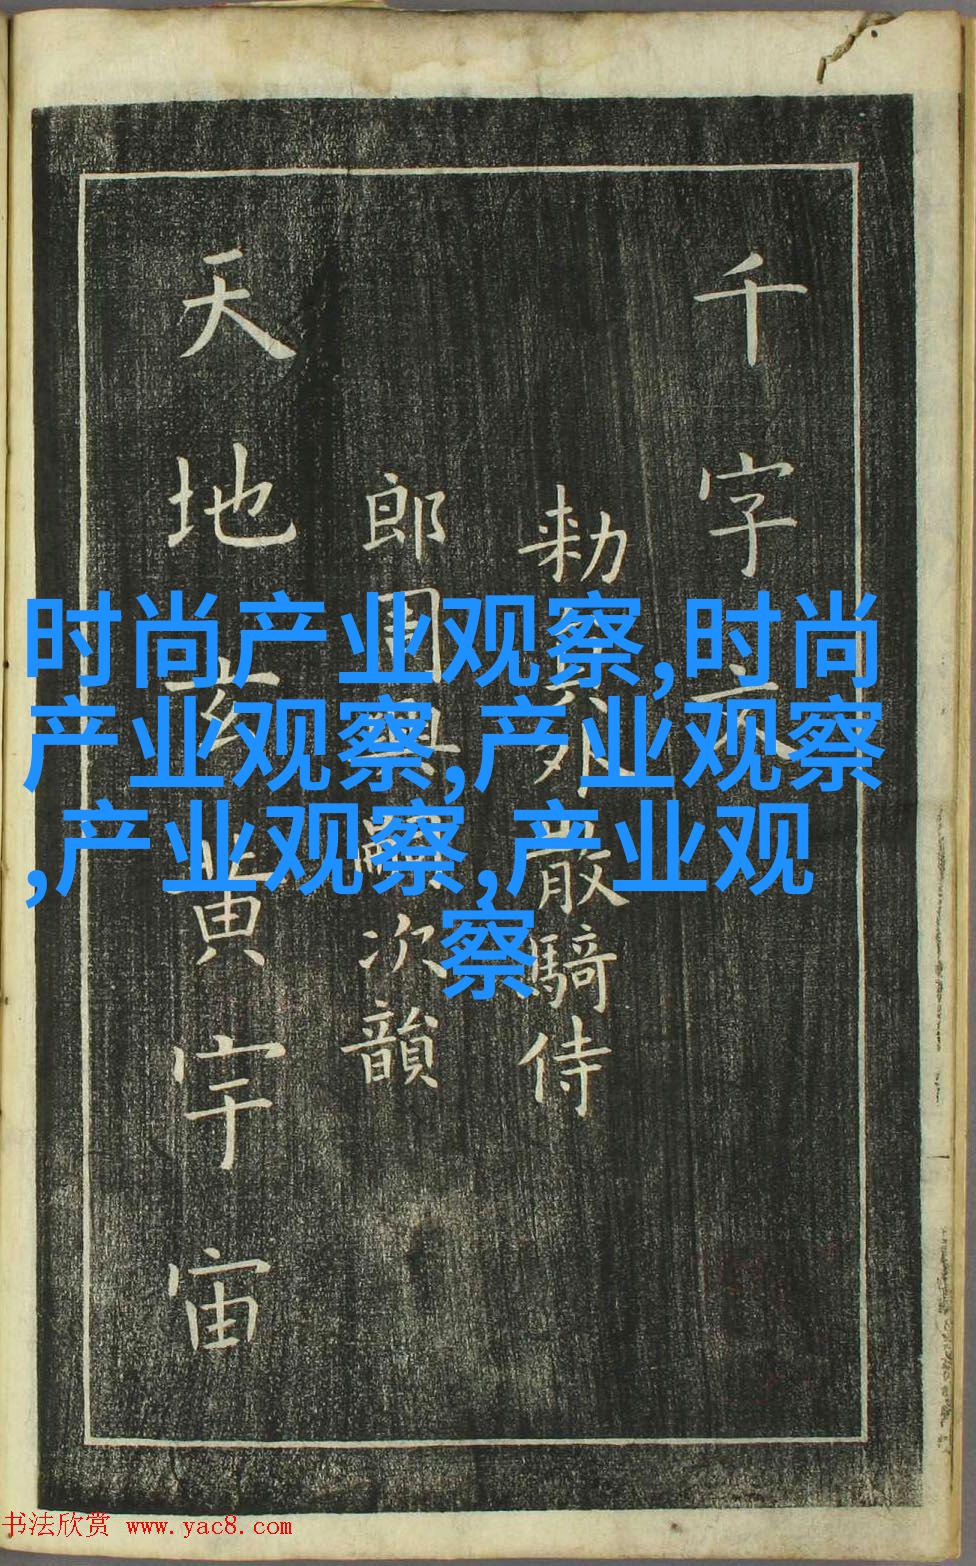 千字文
勑員外散騎侍
郎周興嗣次韻
天地玄黃宇宙
时尚产业观察,时尚
产业观察,产业观察
,产业观察,产业观
察
书法欣赏 www.yac8.com